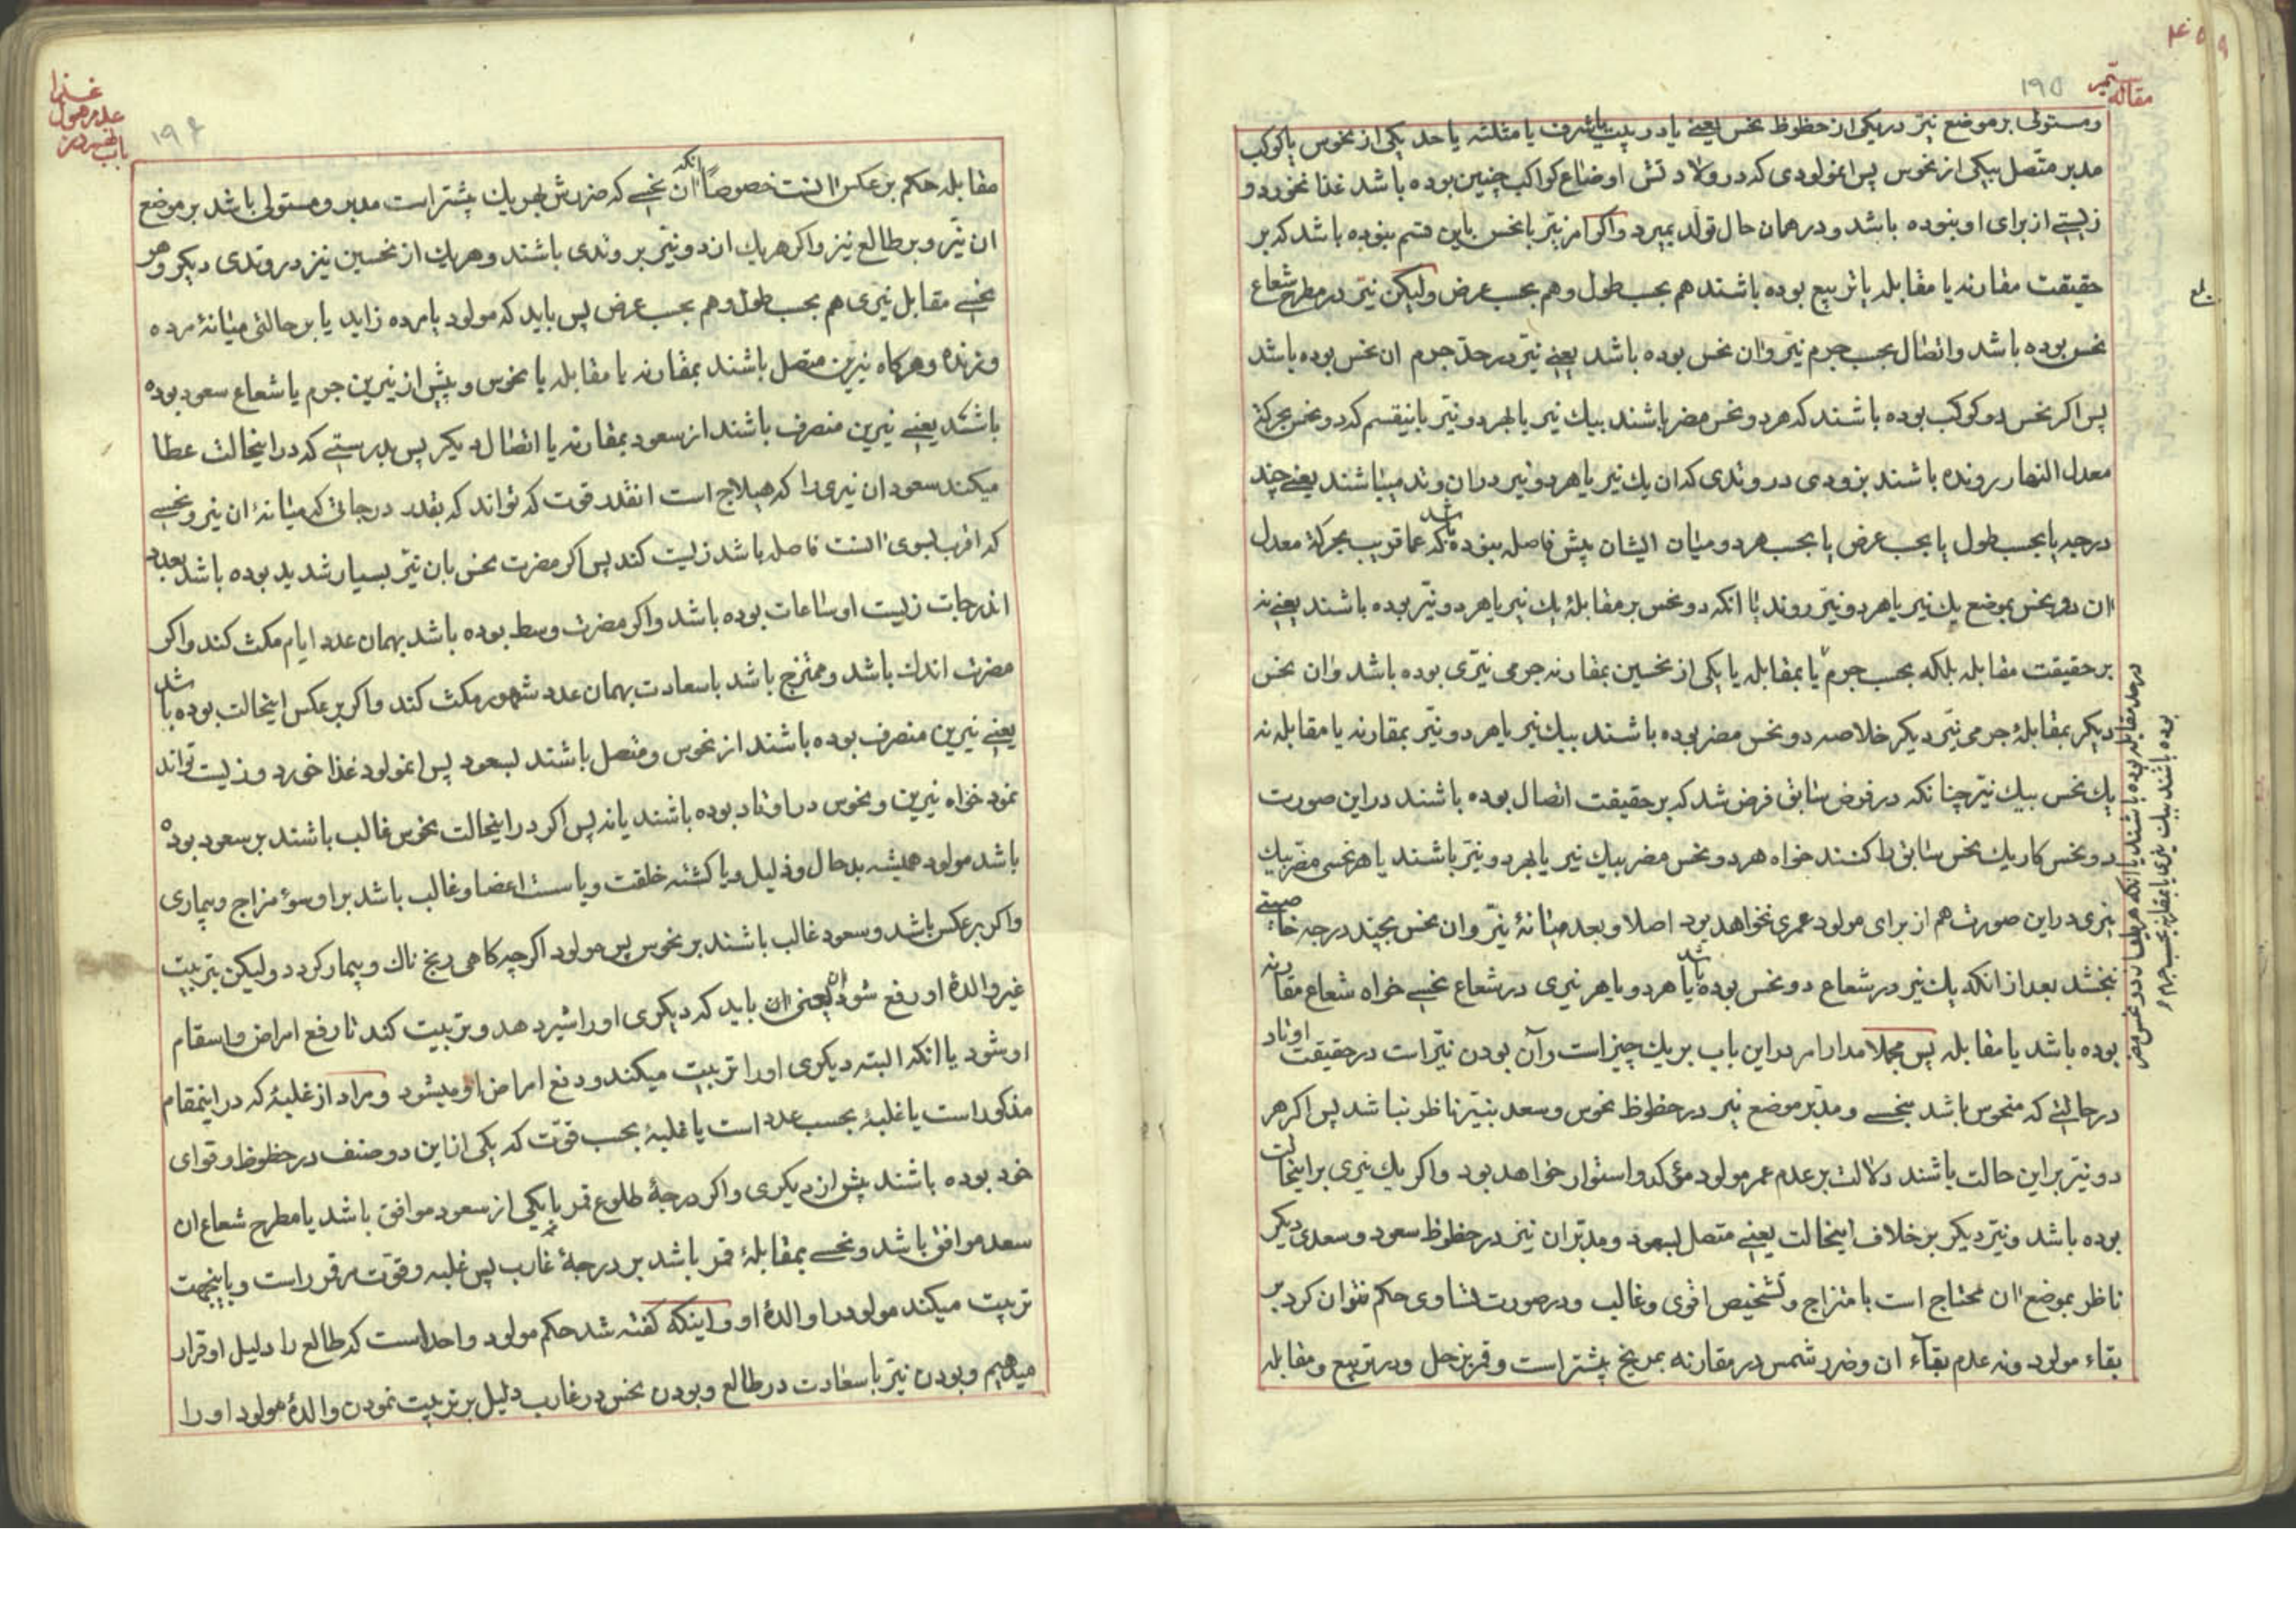 ۴۵۹
مقاله سیم
۱۹۵
ومستولی بر موضع نیّر در یکی از حظوظ نحس یعنی یا در بیت یا شرف یا مثلثه یا حد یکی از نحوس یا کوکب
مدبر متّصل بیکی از نحوس پس انمولودی که در ولادتش اوضاع کواکب چنین بوده باشد غذا نخورد و
زیستی از برای او نبوده باشد و در همان حال تولّد بمیرد و اکر امر نیّر با نحس باین قسم نبوده باشد که بر
حقیقت مقارنه یا مقابله یا تربیع بوده باشند هم بحسب طول و هم بحسب عرض ولیکن نیّر در مطرح شعاع
نحس بوده باشد و اتصال بحسب جرم نیّر و ان نحس بوده باشد یعنی نیّر در حدّ جرم ان نحس بوده باشد
پس اکر نحس دو کوکب بوده باشند که هر دو نحس مضر باشند بیك نیر یا بهر دو نیّر باینقسم که دو نحس بحرکة
معدل النهار رونده باشند بزودی در وتدی که ان یك نیر یا هر دو نیر در ان وتد میباشند یعنی چند
درجه یا بحسب طول یا بحسب عرض یا بحسب هر دو میان ایشان بیش فاصله نبوده باشد که عما قریب بحرکة معدل
ان دو نحس بموضع یك نیر یا هر دو نیّر روند یا انکه دو نحس بر مقابلهٔ یك نیر یا هر دو نیّر بوده باشند یعنی نه
بر حقیقت مقابله بلکه بحسب جرم یا بمقابله یا یکی از نحسین بمقارنه جرمی نیّری بوده باشد و ان نحس
دیکر بمقابلهٔ جرمی نیّر دیکر خلاصه دو نحس مضر بوده باشند بیك نیر یا هر دو نیّر بمقارنه یا مقابله نه
یك نحس بیك نیّر چنانکه در فرض سابق فرض شد که بر حقیقت اتصال بوده باشند در این صورت
دو نحس کار یك نحس سابق را کنند خواه هر دو نحس مضر بیك نیر یا بهر دو نیّر باشند یا هر نحسی مضر بیك
نیری در این صورت هم از برای مولود عمری نخواهد بود اصلا و بعد میانهٔ نیّر و ان نحس بچند درجه خاصیتی
نبخشد بعد از انکه یك نیر در شعاع دو نحس بوده باشد یا هر دو یا هر نیری در شعاع نحسی خواه شعاع مقارنه
بوده باشد یا مقابله پس مجملا مدار امر در این باب بر یك چیز است و آن بودن نیّر است در حقیقت اوتاد
در حالتی که منحوس باشد بنحسی و مدبّر موضع نیر در حظوظ نحوس و سعد بنیّر ناظر نباشد پس اکر هر
دو نیّر بر این حالت باشند دلالت بر عدم عمر مولود مؤکد و استوار خواهد بود و اکر یك نیری بر اینحالت
بوده باشد و نیّر دیکر بر خلاف اینحالت یعنی متصل بسعود و مدبّر ان نیز در حظوظ سعود و سعدی دیکر
ناظر بموضع ان محتاج است بامتزاج و تشخیص اقوی و غالب و در صورت تساوی حکم نتوان کرد بر
بقاء مولود و نه عدم بقاء ان و ضرر شمس در مقارنه بمریخ بیشتر است و قمر بزحل و در تربیع و مقابله
۱۹۶
غذا
مقابله حکم بر عکس انست خصوصاً انکه ان نحسی که ضررش بهر یك بیشتر است مدبر و مستولی باشد بر موضع
ان نیّر و بر طالع نیز و اکر هر یك از دو نیّر بر وتدی باشند و هر یك از نحسین نیز در وتدی دیکر و هر
نحسی مقابل نیری هم بحسب طول و هم بحسب عرض پس باید که مولود یا مرده زاید یا بر حالتی میانهٔ مرده
و زنده و هرکاه نیرین متصل باشند بمقارنه یا مقابله با نحوس و پیش از نیرین جرم یا شعاع سعود بوده
باشد یعنی نیرین منصرف باشند از سعود بمقارنه یا اتصال دیکر پس بدرستی که در اینحالت عطا
میکند سعود ان نیری را که هیلاج است انقدر قوت که تواند که بقدر درجاتی که میانهٔ ان نیر و نحسی
که اقرب بسوی انست فاصله باشد زیست کند پس اکر مضرت نحس بان نیّر بسیار شدید بوده باشد بعدد
اندرجات زیست او ساعات بوده باشد و اکر مضرت وسط بوده باشد بهمان عدد ایام مکث کند و اکر
مضرت اندك باشد و ممتزج باشد با سعادت بهمان عدد شهور مکث کند و اکر بر عکس اینحالت بوده باشد
یعنی نیرین منصرف بوده باشند از نحوس و متصل باشند بسعود پس انمولود غذا خورد و زیست تواند
نمود خواه نیرین و نحوس در اوتاد بوده باشند یا نه پس اکر در اینحالت نحوس غالب باشند بر سعود بوده
باشد مولود همیشه بد حال و ذلیل و یا کشته خلقت و یا سست اعضا و غالب باشد بر او سوء مزاج و بیماری
و اکر بر عکس باشد و سعود غالب باشند بر نحوس پس مولود اکرچه کاهی رنج ناك و بیمار کردد ولیکن بتربیت
غیر والدهٔ او رفع شود ان یعنی ان باید که دیکری او را شیر دهد و تربیت کند تا رفع امراض و اسقام
او شود یا انکه البته دیکری او را تربیت میکند و دفع امراض او میشود و مراد از غلبهٔ که در اینمقام
مذکور است یا غلبهٔ بحسب عدد است یا غلبهٔ بحسب قوّت که یکی از این دو صنف در حظوظ و قوای
خود بوده باشند بیش از دیکری و اکر درجهٔ طلوع قمر با یکی از سعود موافق باشد یا مطرح شعاع ان
سعد موافق باشد و نحسی بمقابلهٔ قمر باشد بر درجهٔ غارب پس غلبه و قوّت مر قمر راست و باینجهت
تربیت میکند مولود را والدهٔ او و اینکه کفته شد حکم مولود واحد است که طالع را دلیل او قرار
میدهیم و بودن نیّر با سعادت در طالع و بودن نحس در غارب دلیل بر تربیت نمودن والدهٔ مولود او را